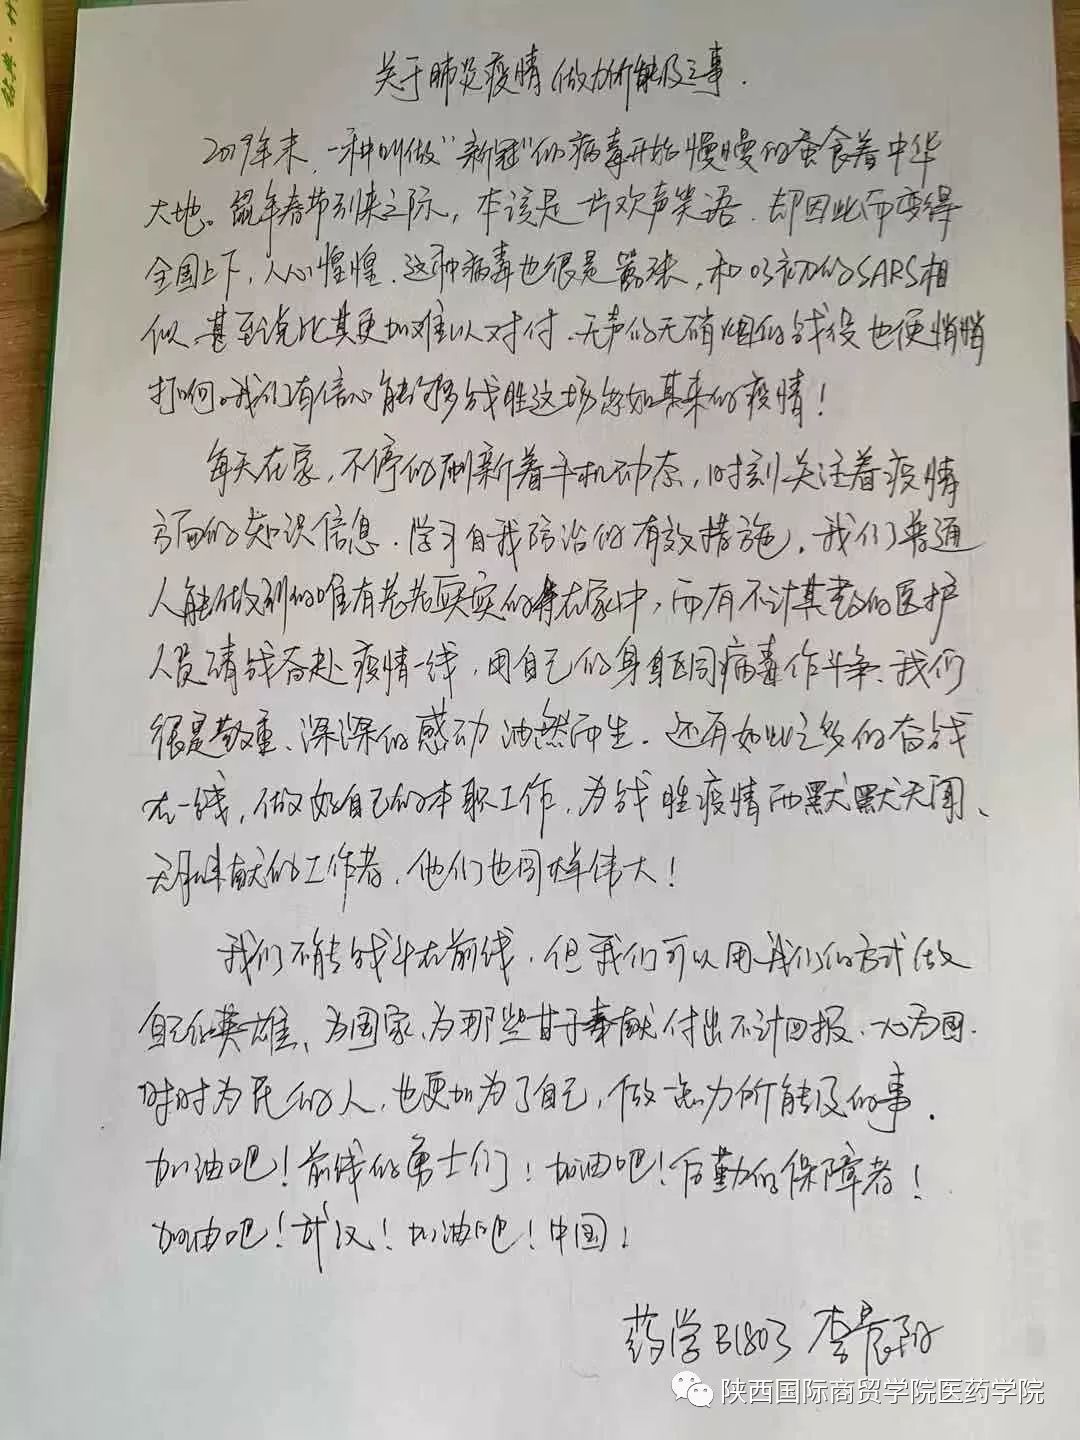 关于肺炎疫情做力所能及之事.
2019年末,一种叫做“新冠”的病毒开始慢慢的蚕食着中华
大地。鼠年春节到来之际,本该是一片欢声笑语.却因此而变得
全国上下,人心惶惶.这种病毒也很是嚣张,和03初的SARS相
似.甚至说比其更加难以对付.无声的无硝烟的战役也便悄悄
打响。我们有信心能够战胜这场突如其来的疫情!
每天在家,不停的刷新着手机动态,时刻关注着疫情
方面的知识信息.学习自我防治的有效措施.我们普通
人能做到的唯有老老实实的待在家中,而有不计其数的医护
人员请战奋赴疫情一线,用自己的身躯同病毒作斗争.我们
很是敬重、深深的感动油然而生.还有如此之多的奋战
在一线,做好自己的本职工作,为战胜疫情而默默无闻、
无私奉献的工作者,他们也同样伟大!
我们不能战斗在前线.但我们可以用我们的方式做
自己的英雄、为国家、为那些甘于奉献付出不计回报.一心为国.
时时为民的人,也更加为了自己,做一些力所能及的事.
加油吧!前线的勇士们!加油吧!后勤的保障者!
加油吧!武汉!加油吧!中国!
药学B1803 李晨阳
陕西国际商贸学院医药学院